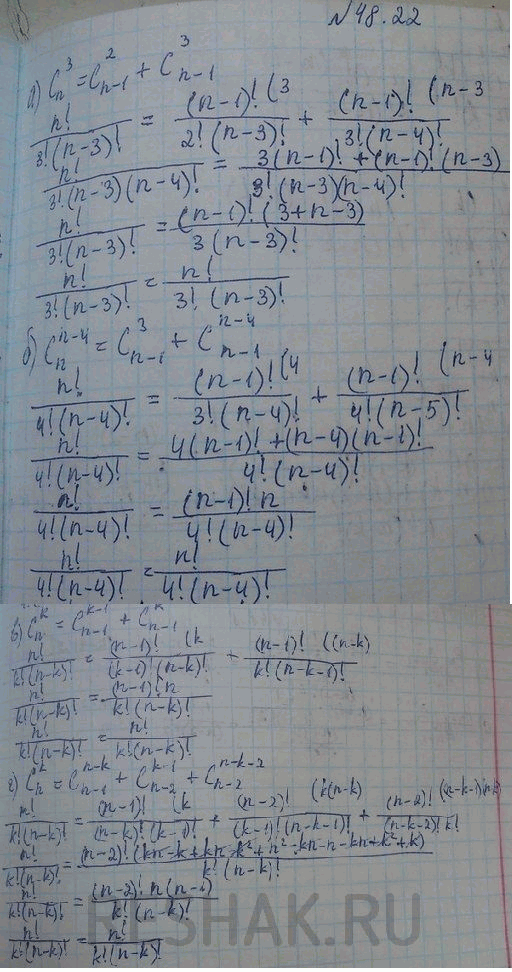 №48.22
а) C_n^3 = C_{n-1}^2 + C_{n-1}^3
n!/(3!(n-3)!) = (n-1)! (3/(2!(n-3)!) + (n-1)! (n-3/(3!(n-4)!)
n!/(3!(n-3)(n-4)!) = (3(n-1)! + (n-1)!(n-3))/(3!(n-3)(n-4)!)
n!/(3!(n-3)!) = (n-1)!(3+n-3)/(3(n-3)!)
n!/(3!(n-3)!) = n!/(3!(n-3)!)
б) C_n^{n-4} = C_{n-1}^3 + C_{n-1}^{n-4}
n!/(4!(n-4)!) = (n-1)! (4/(3!(n-4)!) + (n-1)! (n-4/(4!(n-5)!)
n!/(4!(n-4)!) = (4(n-1)! + (n-4)(n-1)!)/(4!(n-4)!)
n!/(4!(n-4)!) = (n-1)! n/(4!(n-4)!)
n!/(4!(n-4)!) = n!/(4!(n-4)!)
в) C_n^k = C_{n-1}^{k-1} + C_{n-1}^k
n!/(k!(n-k)!) = (n-1)! (k/((k-1)!(n-k)!) + (n-1)! ((n-k)/(k!(n-k-1)!)
n!/(k!(n-k)!) = (n-1)! n/(k!(n-k)!)
n!/(k!(n-k)!) = n!/(k!(n-k)!)
г) C_n^k = C_{n-1}^{n-k} + C_{n-2}^{k-1} + C_{n-2}^{n-k-2}
n!/(k!(n-k)!) = (n-1)! (k/((n-k)!(k-1)!) + (n-2)! (k(n-k)/((k-1)!(n-k-1)!) + (n-2)! (n-k-1)(n-k)/((n-k-2)! k!)
n!/(k!(n-k)!) = (n-2)! (kn-k+kn-k²+n²-kn-n-kn+k²+k)/(k!(n-k)!)
n!/(k!(n-k)!) = (n-2)! n(n-1)/(k!(n-k)!)
n!/(k!(n-k)!) = n!/(k!(n-k)!)
RESHAK.RU